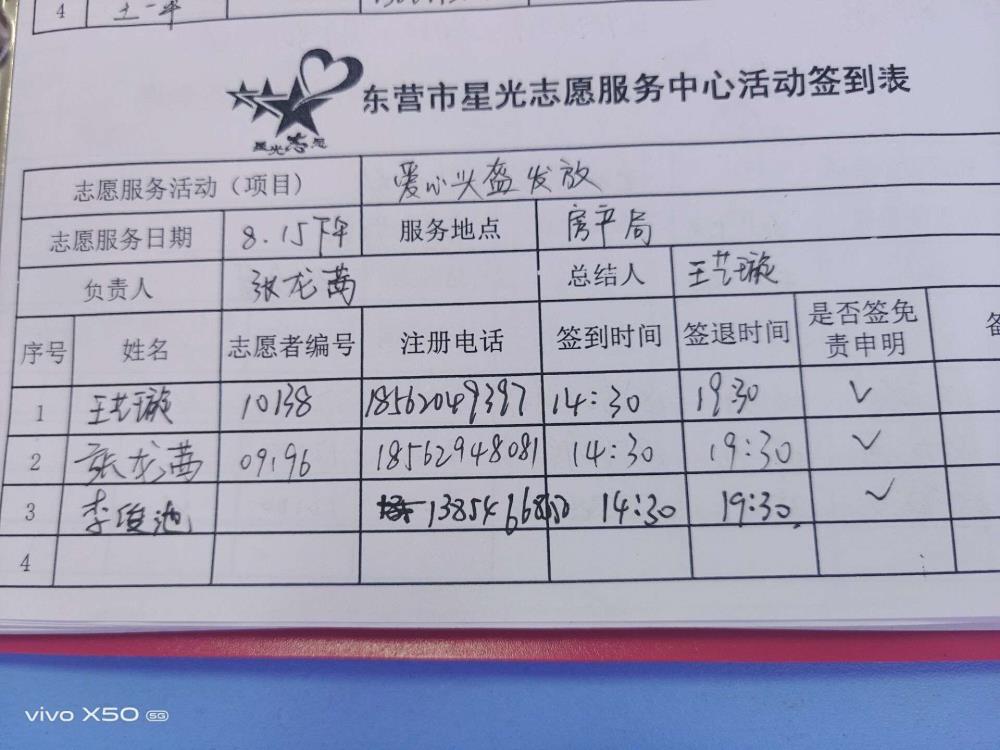 4 王一平
东营市星光志愿服务中心活动签到表
星光志愿
志愿服务活动（项目） 爱心头盔发放
志愿服务日期 8.15下午 服务地点 房产局
负责人 张龙茜 总结人 王艺璇
序号 姓名 志愿者编号 注册电话 签到时间 签退时间 是否签免责申明
1 王艺璇 10138 18562049397 14:30 19:30 ✓
2 张龙茜 09196 18562948081 14:30 19:30 ✓
3 李俊池 14:30 19:30. ✓
4
vivo X50 5G